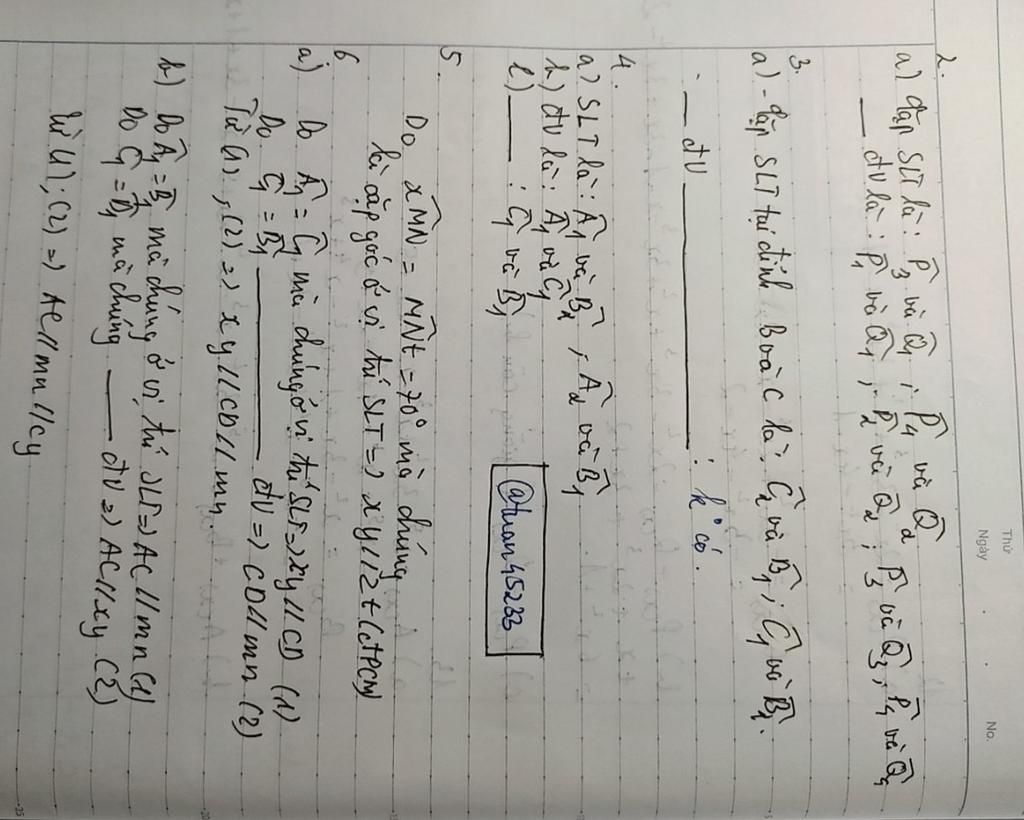 Thứ
Ngày
No.
2.
a) cặp SLT là: P̂3 và Q̂1; P̂4 và Q̂2
___ đV là: P̂1 và Q̂1; P̂2 và Q̂2; P̂3 và Q̂3, P̂4 và Q̂4
3.
a) - cặp SLT tại đỉnh B và C là: Ĉ2 và B̂1; Ĉ1 và B̂2.
- ___ đV ___ : k° có.
4.
a) SLT là: Â1 và B̂2, Â2 và B̂1
b) đV là: Â1 và Ĉ1
c) ___ : Ĉ1 và B̂1
@tuan45233
5.
Do xMN = MNt = 70° mà chúng
là cặp góc ở vị trí SLT => xy // zt (đPCM)
6
a) Do Â1 = Ĉ1 mà chúng ở vị trí SLT => xy // CD (1)
Do Ĉ1 = B̂1 ___ đV => CD // mn (2)
Từ (1), (2) => xy // CD // mn.
b) Do Â1 = B̂1 mà chúng ở vị trí SLT => AC // mn (1)
Do Ĉ1 = D̂1 mà chúng ___ đV => AC // xy (2)
từ (1); (2) => AC // mn // cy
25